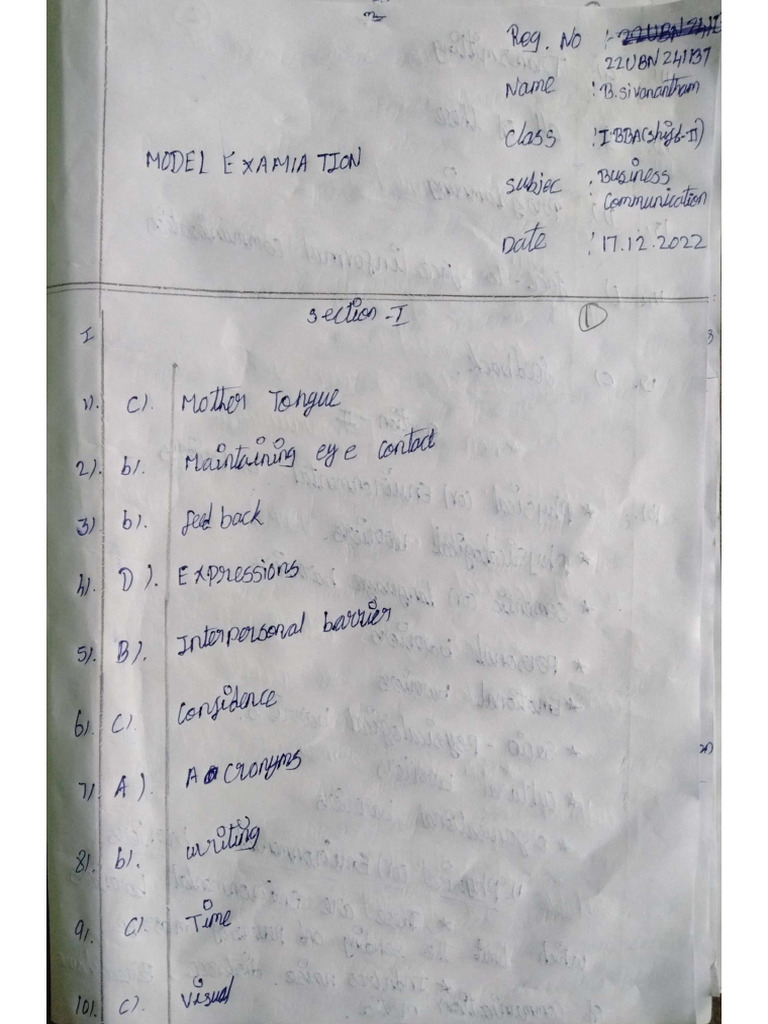 Reg. No :- 22UBN2411
22UBN241137
Name : B.Sivanantham
Class : I-BBA(Shift-II)
MODEL EXAMIATION
Subjec : Business
: Communication
Date : 17.12.2022
Section-I
1
I
1). C). Mother Tongue
2). b). Maintaining eye contact
3) b). feed back
4). D). Expressions
5). B). Interpersonal barrier
6). C). Confidence
7). A). Acronyms
8). b). writing
9). C). Time
10). C). Visual